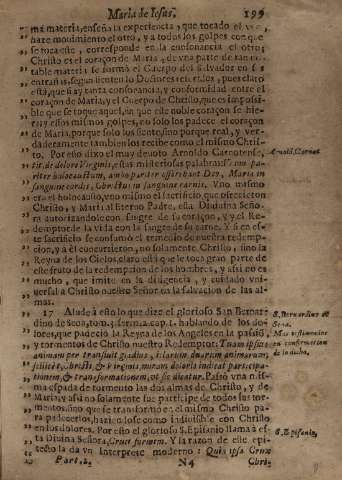 Maria de Iesus. 199
ma materia, enseña la experiencia, que tocado el vno,
haze movimiento el otro, y a todos los golpes con que
se toca este, corresponde en la consonancia el otro;
Christo es el coraçon de Maria, de vna parte de tan no-
table materia se formó el Cuerpo del Salvador en sus
entrañas, segun siento lo Dotores referidos, pues claro
está, que si ay tanta consonancia, y conformidad entre el
coraçon de Maria, y el Cuerpo de Christo, que es imposi-
ble que se toque aquel, sin que este noble coraçon se hie-
ra; y essos mismos golpes, no solo los padece el coraçon
de Maria, porque solo los siente, sino porque real, y ver-
daderamente tambien los recibe como el mismo Chris-
to. Por esso dixo el muy devoto Arnoldo Carnotense,
tit. de dolore Virginis, estas misteriosas palabras: com pa-
riter holocaustum, ambo pariter offerebant Deo, Maria in
sanguine cordis, Christus in sanguine carnis. Vno mismo
era el holocausto, vno mismo el sacrificio que ofrecieron
Christo, y Maria al Eterno Padre, esta Diuina Seño-
ra autorizandole con sangre de su coraçon, y el Re-
demptor de la vida con la sangre de su carne. Y si en es-
te sacrificio se consumó el remedio de nuestra redemp-
cion, y a él concurrieron, no solamente Christo, sino la
Reyna de los Cielos, claro está que le toca gran parte
de este fruto de la redempcion de los hombres, y assi no es
mucho, que imite en la diligencia, y cuidado vni-
versal a Christo nuestro Señor en la salvacion de las al-
mas.
17 Alude a esto lo que dize el glorioso San Bernar-
dino de Sena, tom. 3. serm. 2. cap. 1. hablando de los do-
lores, que padeció la Reyna de los Angeles en la passió,
y tormentos de Christo nuestro Redemptor: Tuam ipsius
animam pertransiuit gladius, illarum duarum animarum,
filii, Christi, & Virginis, miram doloris indicat participa-
tionem, & transformationem, vt sic dicatur. Passó vna mis-
ma espada de tormento las dos almas de Christo, y de
Maria, y assi no solamente fue participe de todos los tor-
mentos, sino que se transformó en el mismo Christo pa-
ra padecerlos, haziendose como indiuisible con Christo
en los dolores. Por esto el glorioso S. Epifanio llama à es-
ta Divina Señora, Cruci formem. Y la razon de este epi-
tecto la da vn Interprete moderno: Quia ipsa Crux
Part. 2. N4 Chri-
Arnold. Carnot.
S. Bernardino de
Sena.
Mas testimonios
en confirmacion
de lo dicho.
S. Epifanio.